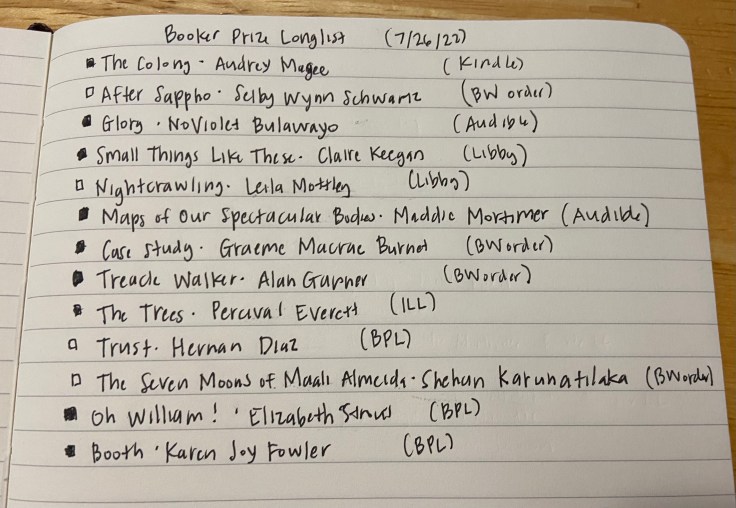 Booker Prize Longlist (7/26/22)
The Colony · Audrey Magee (Kindle)
After Sappho · Selby Wynn Schwartz (BW order)
Glory · NoViolet Bulawayo (Audible)
Small Things Like These · Claire Keegan (Libby)
Nightcrawling · Leila Mottley (Libby)
Maps of Our Spectacular Bodies · Maddie Mortimer (Audible)
Case Study · Graeme Macrae Burnet (BWorder)
Treacle Walker · Alan Garner (BWorder)
The Trees · Percival Everett (ILL)
Trust · Hernan Diaz (BPL)
The Seven Moons of Maali Almeida · Shehan Karunatilaka (BWorder)
Oh William! · Elizabeth Strout (BPL)
Booth · Karen Joy Fowler (BPL)